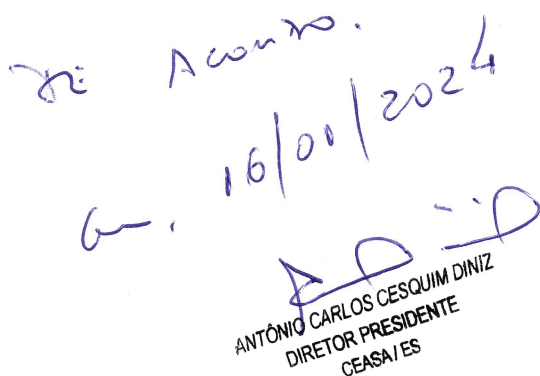 De Acordo.
Em, 16/01/2024
ANTÔNIO CARLOS CESQUIM DINIZ
DIRETOR PRESIDENTE
CEASA/ES